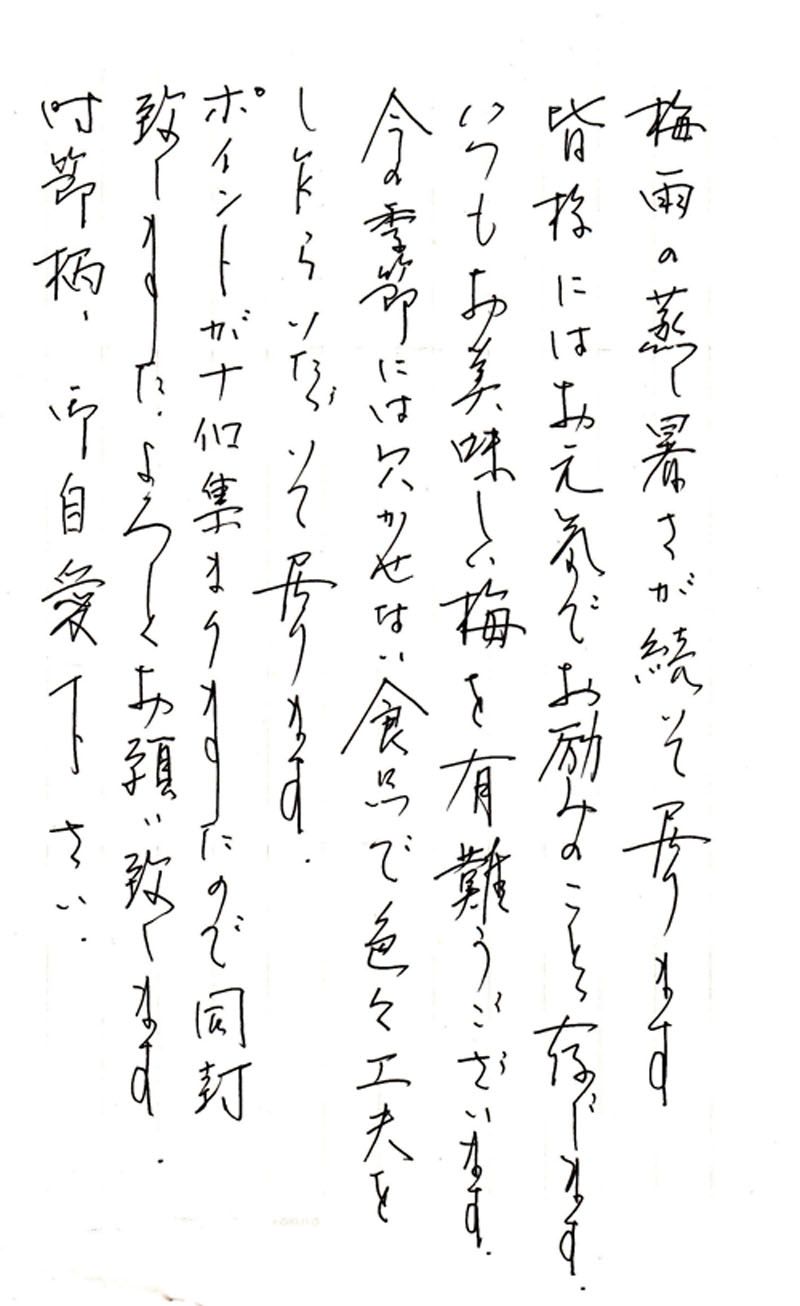 梅雨の蒸し暑さが続いて居ります
皆様にはお元気でお励みのことと存じます.
いつもお美味しい梅を有難うございます.
今の季節には欠かせない食品で色々工夫を
しながらいただいて居ります.
ポイントがナ個集まりますたので同封
致しました.よろしくお願い致します.
時節柄、御自愛下さい.